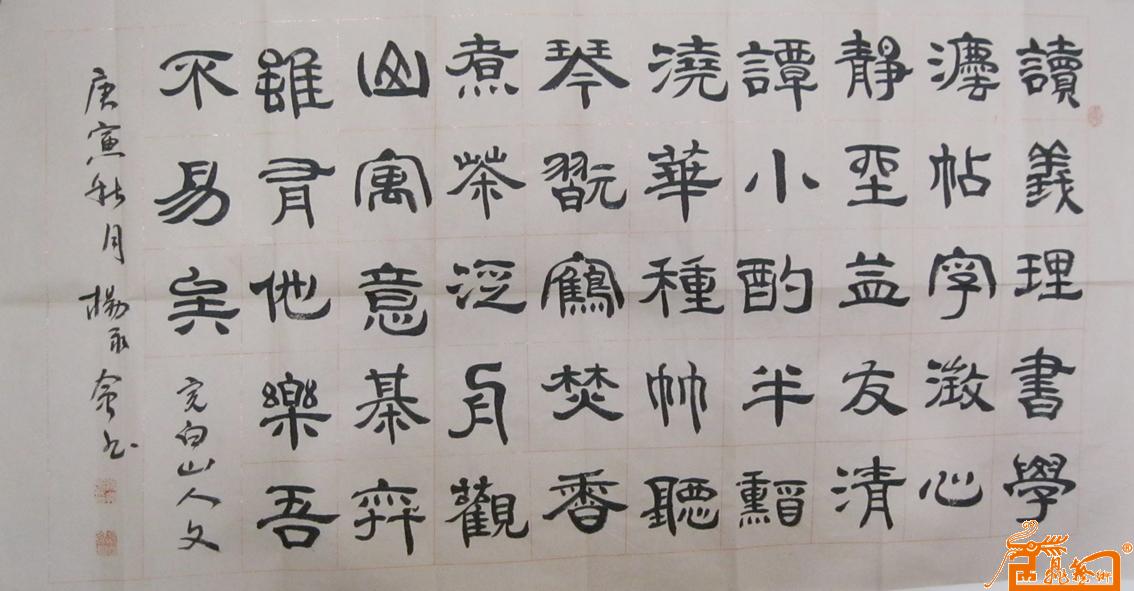 讀義理書學
灋帖字澂心
靜坐益友清
譚小酌半醺
澆華種竹聽
琴翫鶴焚香
煮茶泛舟觀
山寓意棊弈
雖有他樂吾
不易矣 完白山人文
庚寅秋月楊書